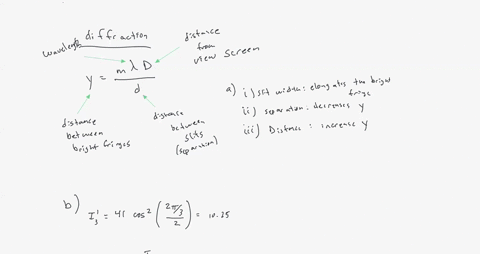 diffraction
wavelength
distance
from
view screen
y = mλD / d
distance
between
bright fringes
distance
between
slits
(separation)
a) i) slit width: elongates the bright
fringe
ii) separation: decreases y
iii) Distance: increase y
b) I'₃ = 41 cos² ( 2π/3 / 2 ) = 10.25